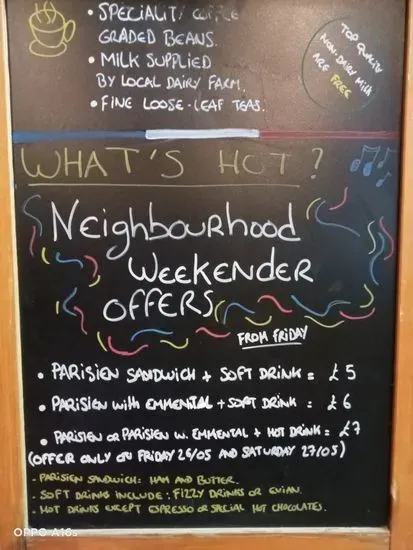 • SPECIALITY COFFEE
GRADED BEANS.
• MILK SUPPLIED
BY LOCAL DAIRY FARM.
• FINE LOOSE-LEAF TEAS.
TOP QUALITY
NON-DAIRY MILK
ARE FREE
WHAT'S HOT?
NEIGHBOURHOOD
WEEKENDER
OFFERS
FROM FRIDAY
• PARISIEN SANDWICH + SOFT DRINK = £5
• PARISIEN WITH EMMENTAL + SOFT DRINK = £6
• PARISIEN OR PARISIEN W. EMMENTAL + HOT DRINK = £7
(OFFER ONLY ON FRIDAY 26/05 AND SATURDAY 27/05)
- PARISIEN SANDWICH: HAM AND BUTTER.
- SOFT DRINKS INCLUDE: FIZZY DRINKS OR EVIAN.
- HOT DRINKS EXCEPT ESPRESSO OR SPECIAL HOT CHOCOLATES.
OPPO A16s